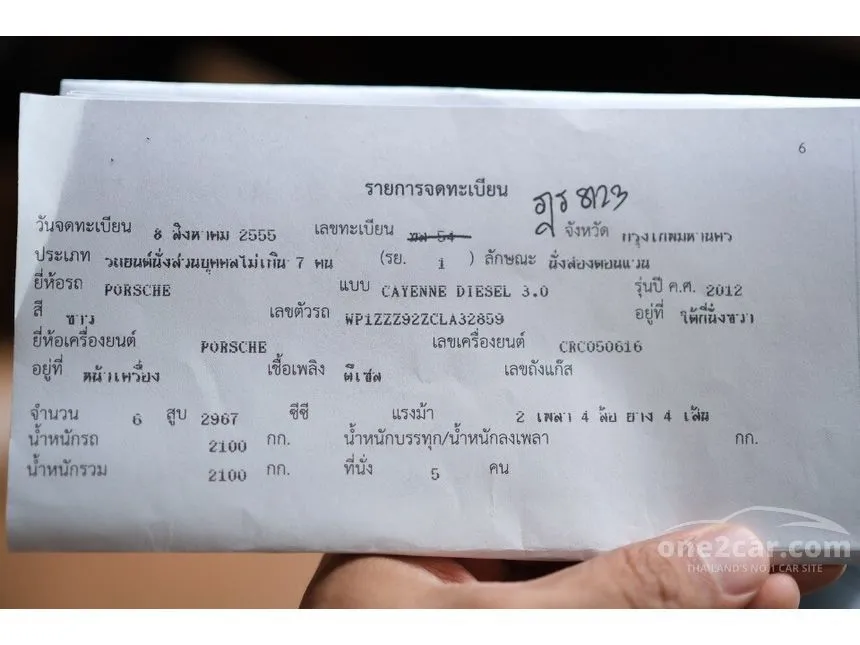 6
รายการจดทะเบียน
วันจดทะเบียน 8 สิงหาคม 2555 เลขทะเบียน 54 จังหวัด กรุงเทพมหานคร
ประเภท รถยนต์นั่งส่วนบุคคลไม่เกิน 7 คน (รย. 1 ) ลักษณะ นั่งสองตอนแวน
ยี่ห้อรถ PORSCHE แบบ CAYENNE DIESEL 3.0 รุ่นปี ค.ศ. 2012
สี ขาว เลขตัวรถ WP1ZZZ92ZCLA32859 อยู่ที่ ใต้ที่นั่งขวา
ยี่ห้อเครื่องยนต์ PORSCHE เลขเครื่องยนต์ CRC050616
อยู่ที่ หน้าเครื่อง เชื้อเพลิง ดีเซล เลขถังแก๊ส
จำนวน 6 สูบ 2967 ซีซี แรงม้า 2 เพลา 4 ล้อ ยาง 4 เส้น
น้ำหนักรถ 2100 กก. น้ำหนักบรรทุก/น้ำหนักลงเพลา กก.
น้ำหนักรวม 2100 กก. ที่นั่ง 5 คน
one2car.com
THAILAND'S NO.1 CAR SITE